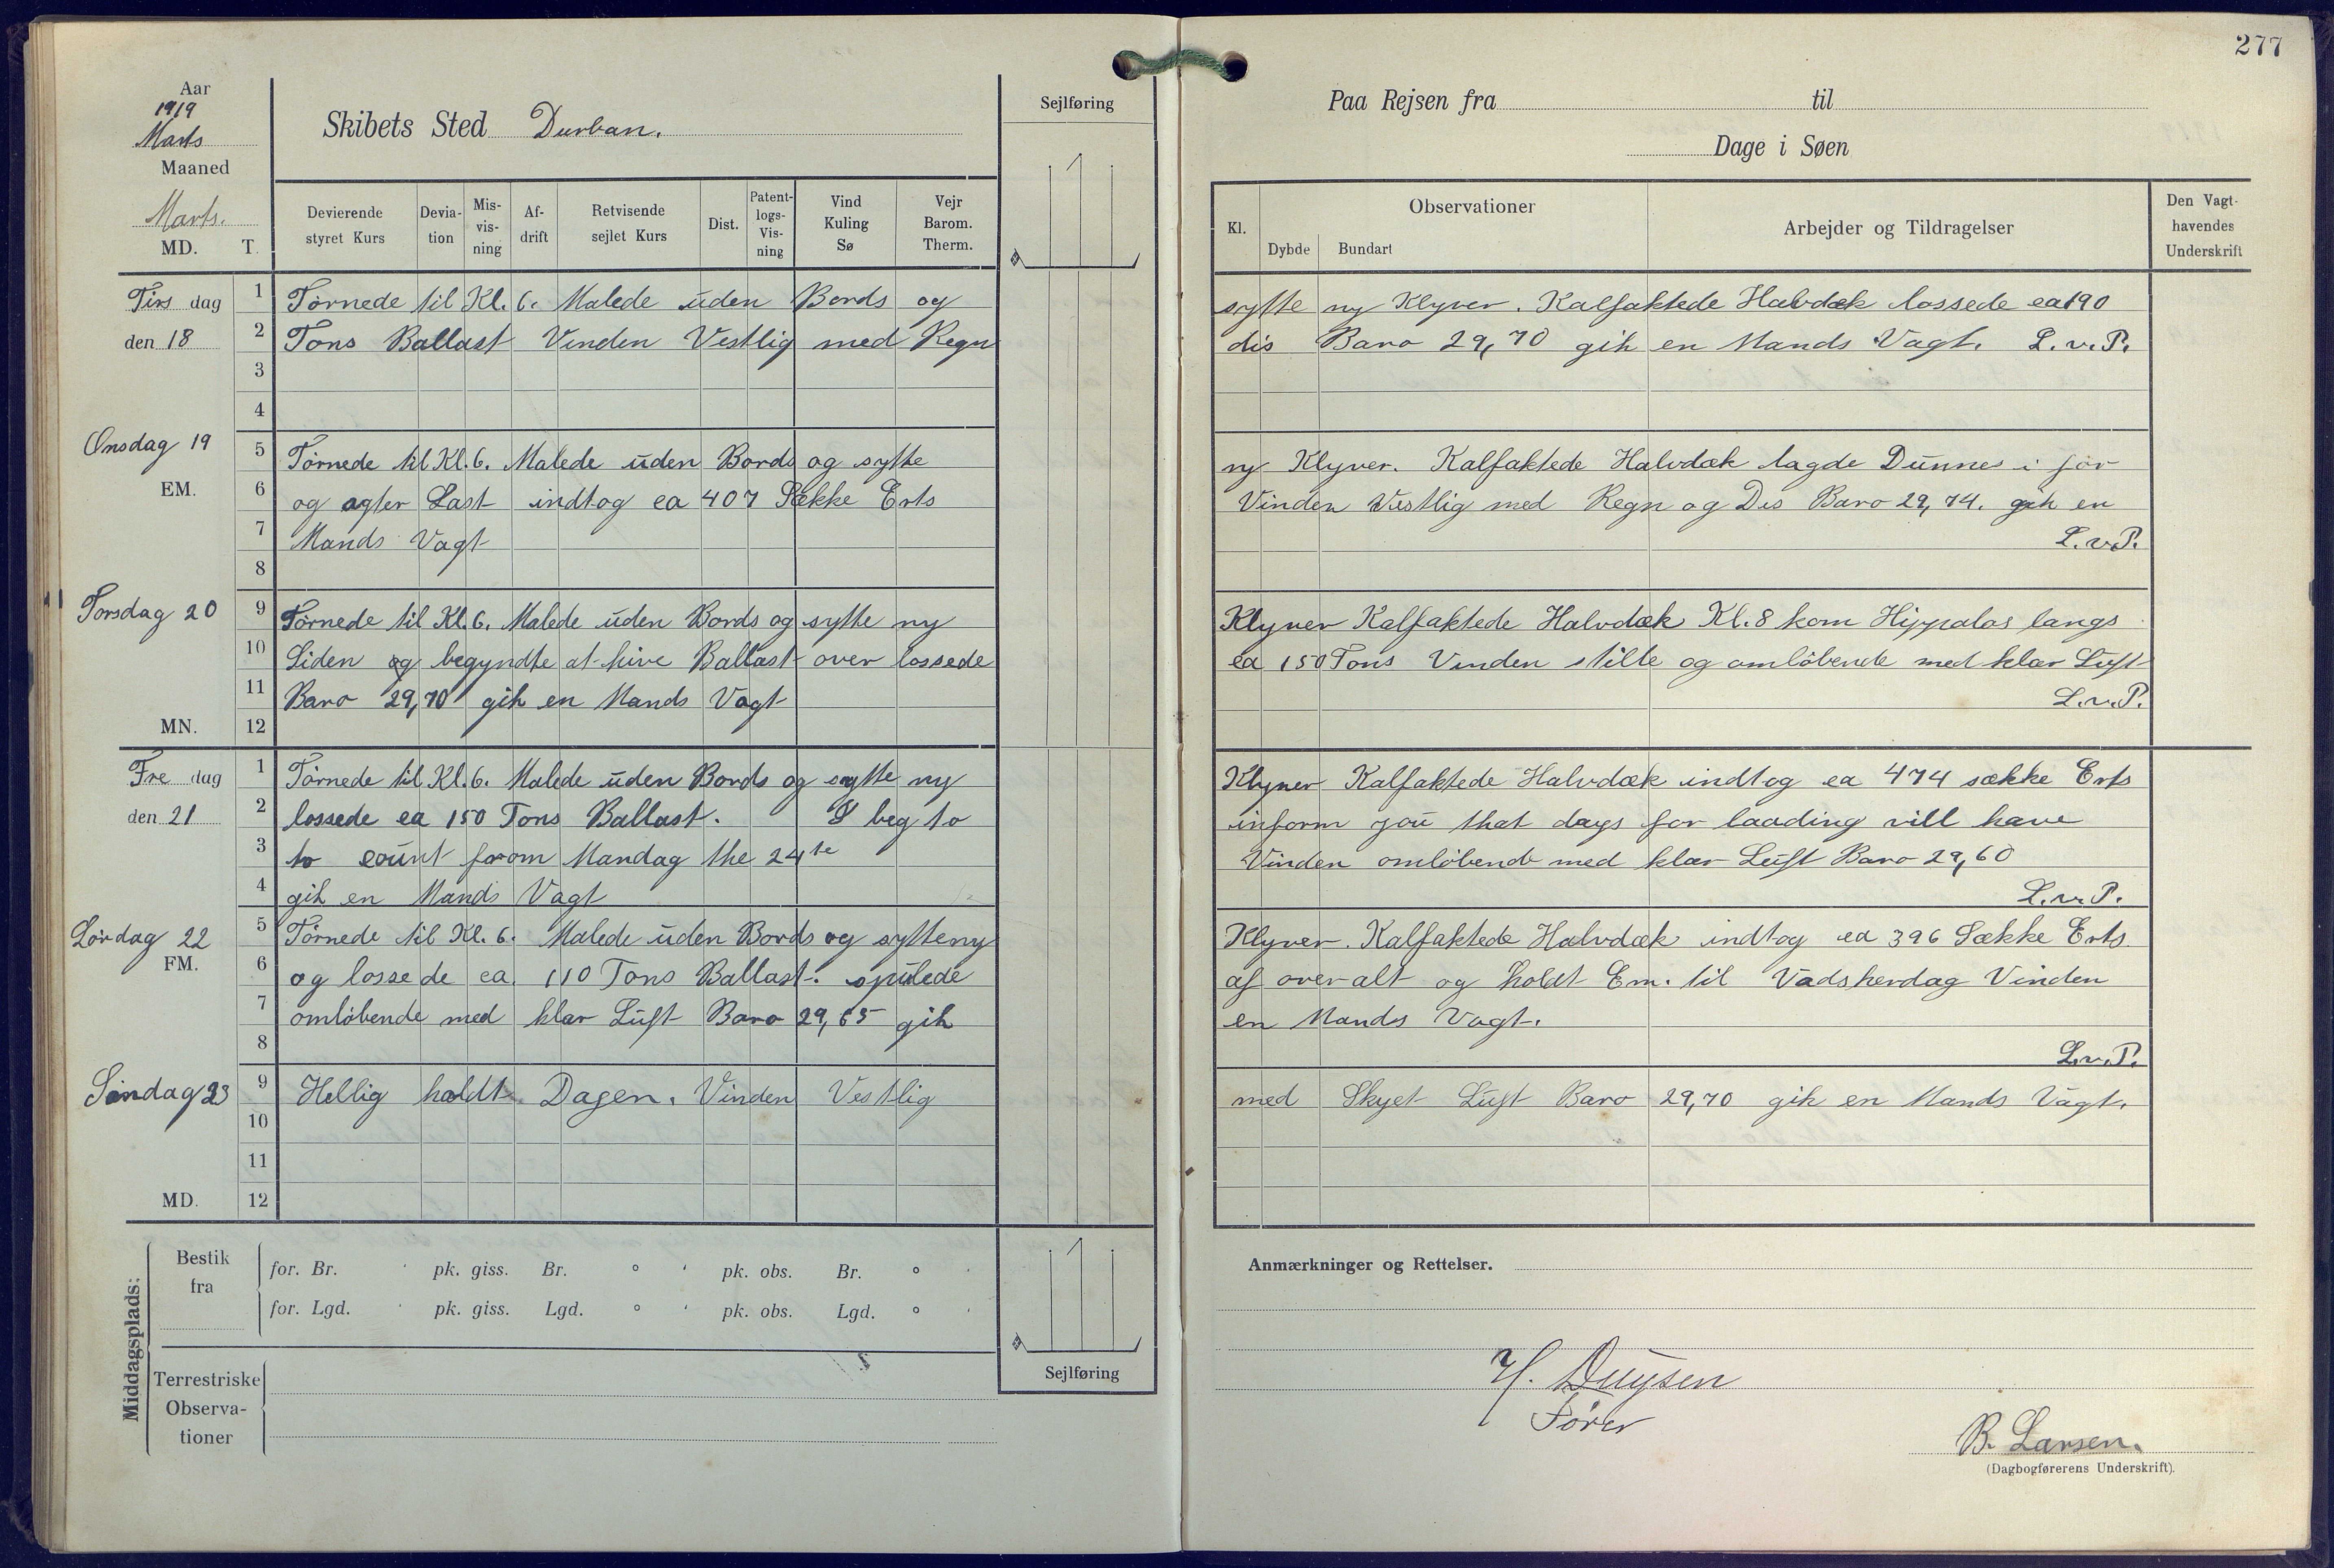 277
Aar
1919
Marts
Maaned
Marts.
MD. T.
Skibets Sted Durban.
Sejlføring
Paa Rejsen fra til
Dage i Søen
Devierende styret Kurs
Devia-tion
Mis-vis-ning
Af-drift
Retvisende sejlet Kurs
Dist.
Patent-logs-Vis-ning
Vind Kuling Sø
Vejr Barom. Therm.
Kl.
Observationer
Dybde Bundart
Arbejder og Tildragelser
Den Vagt-havendes Underskrift
Tirs dag 1 Törnede til Kl. 6. Malede uden Bords og sytte ny Klyver. Kalfaktede Halvdæk lossede ca 190
den 18 2 Tons Ballast Vinden Vestlig med Regn dis Baro 29,70 gik en Mands Vagt. L.v.P.
3
4
Onsdag 19 5 Törnede til Kl. 6. Malede uden Bords og sytte ny Klyver. Kalfaktede Halvdæk lagde Dunnes i for
EM. 6 og agter Last indtog ca 407 Sække Erts Vinden Vestlig med Regn og Dis Baro 29,74. gik en
7 Mands Vagt L.v.P.
8
Torsdag 20 9 Törnede til Kl. 6. Malede uden Bords og sytte ny Klyver Kalfaktede Halvdæk Kl. 8 kom Hippalos langs
10 Siden og begyndte at hive Ballast over lossede ca 150 Tons Vinden stille og omlöbende med klar Luft
11 Baro 29,70 gik en Mands Vagt L.v.P.
MN. 12
Fre dag 1 Törnede til Kl. 6. Malede uden Bords og sytte ny Klyver Kalfaktede Halvdæk indtog ca 474 sække Erts
den 21 2 lossede ca 150 Tons Ballast. I beg to inform you that days for laading vill have
3 to count from Mandag the 24te Vinden omlöbende med klar Luft Baro 29,60
4 gik en Mands Vagt L.v.P.
Lördag 22 5 Törnede til Kl. 6. Malede uden Bords og sytte ny Klyver. Kalfaktede Halvdæk indtog ca 396 Sække Erts.
FM. 6 og lossede ca. 110 Tons Ballast. spulede af over alt og holdt Em. til Vadskerdag Vinden
7 omlöbende med klar Luft Baro 29,65 gik en Mands Vagt.
8 L.v.P.
Söndag 23 9 Hellig holdt Dagen. Vinden Vestlig med Skyet Luft Baro 29,70 gik en Mands Vagt.
10
11
MD. 12
Middagsplads:
Bestik fra
for. Br. ' pk. giss. Br. ° ' pk. obs. Br. ° '
for. Lgd. ' pk. giss. Lgd. ° ' pk. obs. Lgd. ° '
Sejlføring
Terrestriske Observa-tioner
Anmærkninger og Rettelser.
H. Duysen
Förer
B. Larsen.
(Dagbogførerens Underskrift).